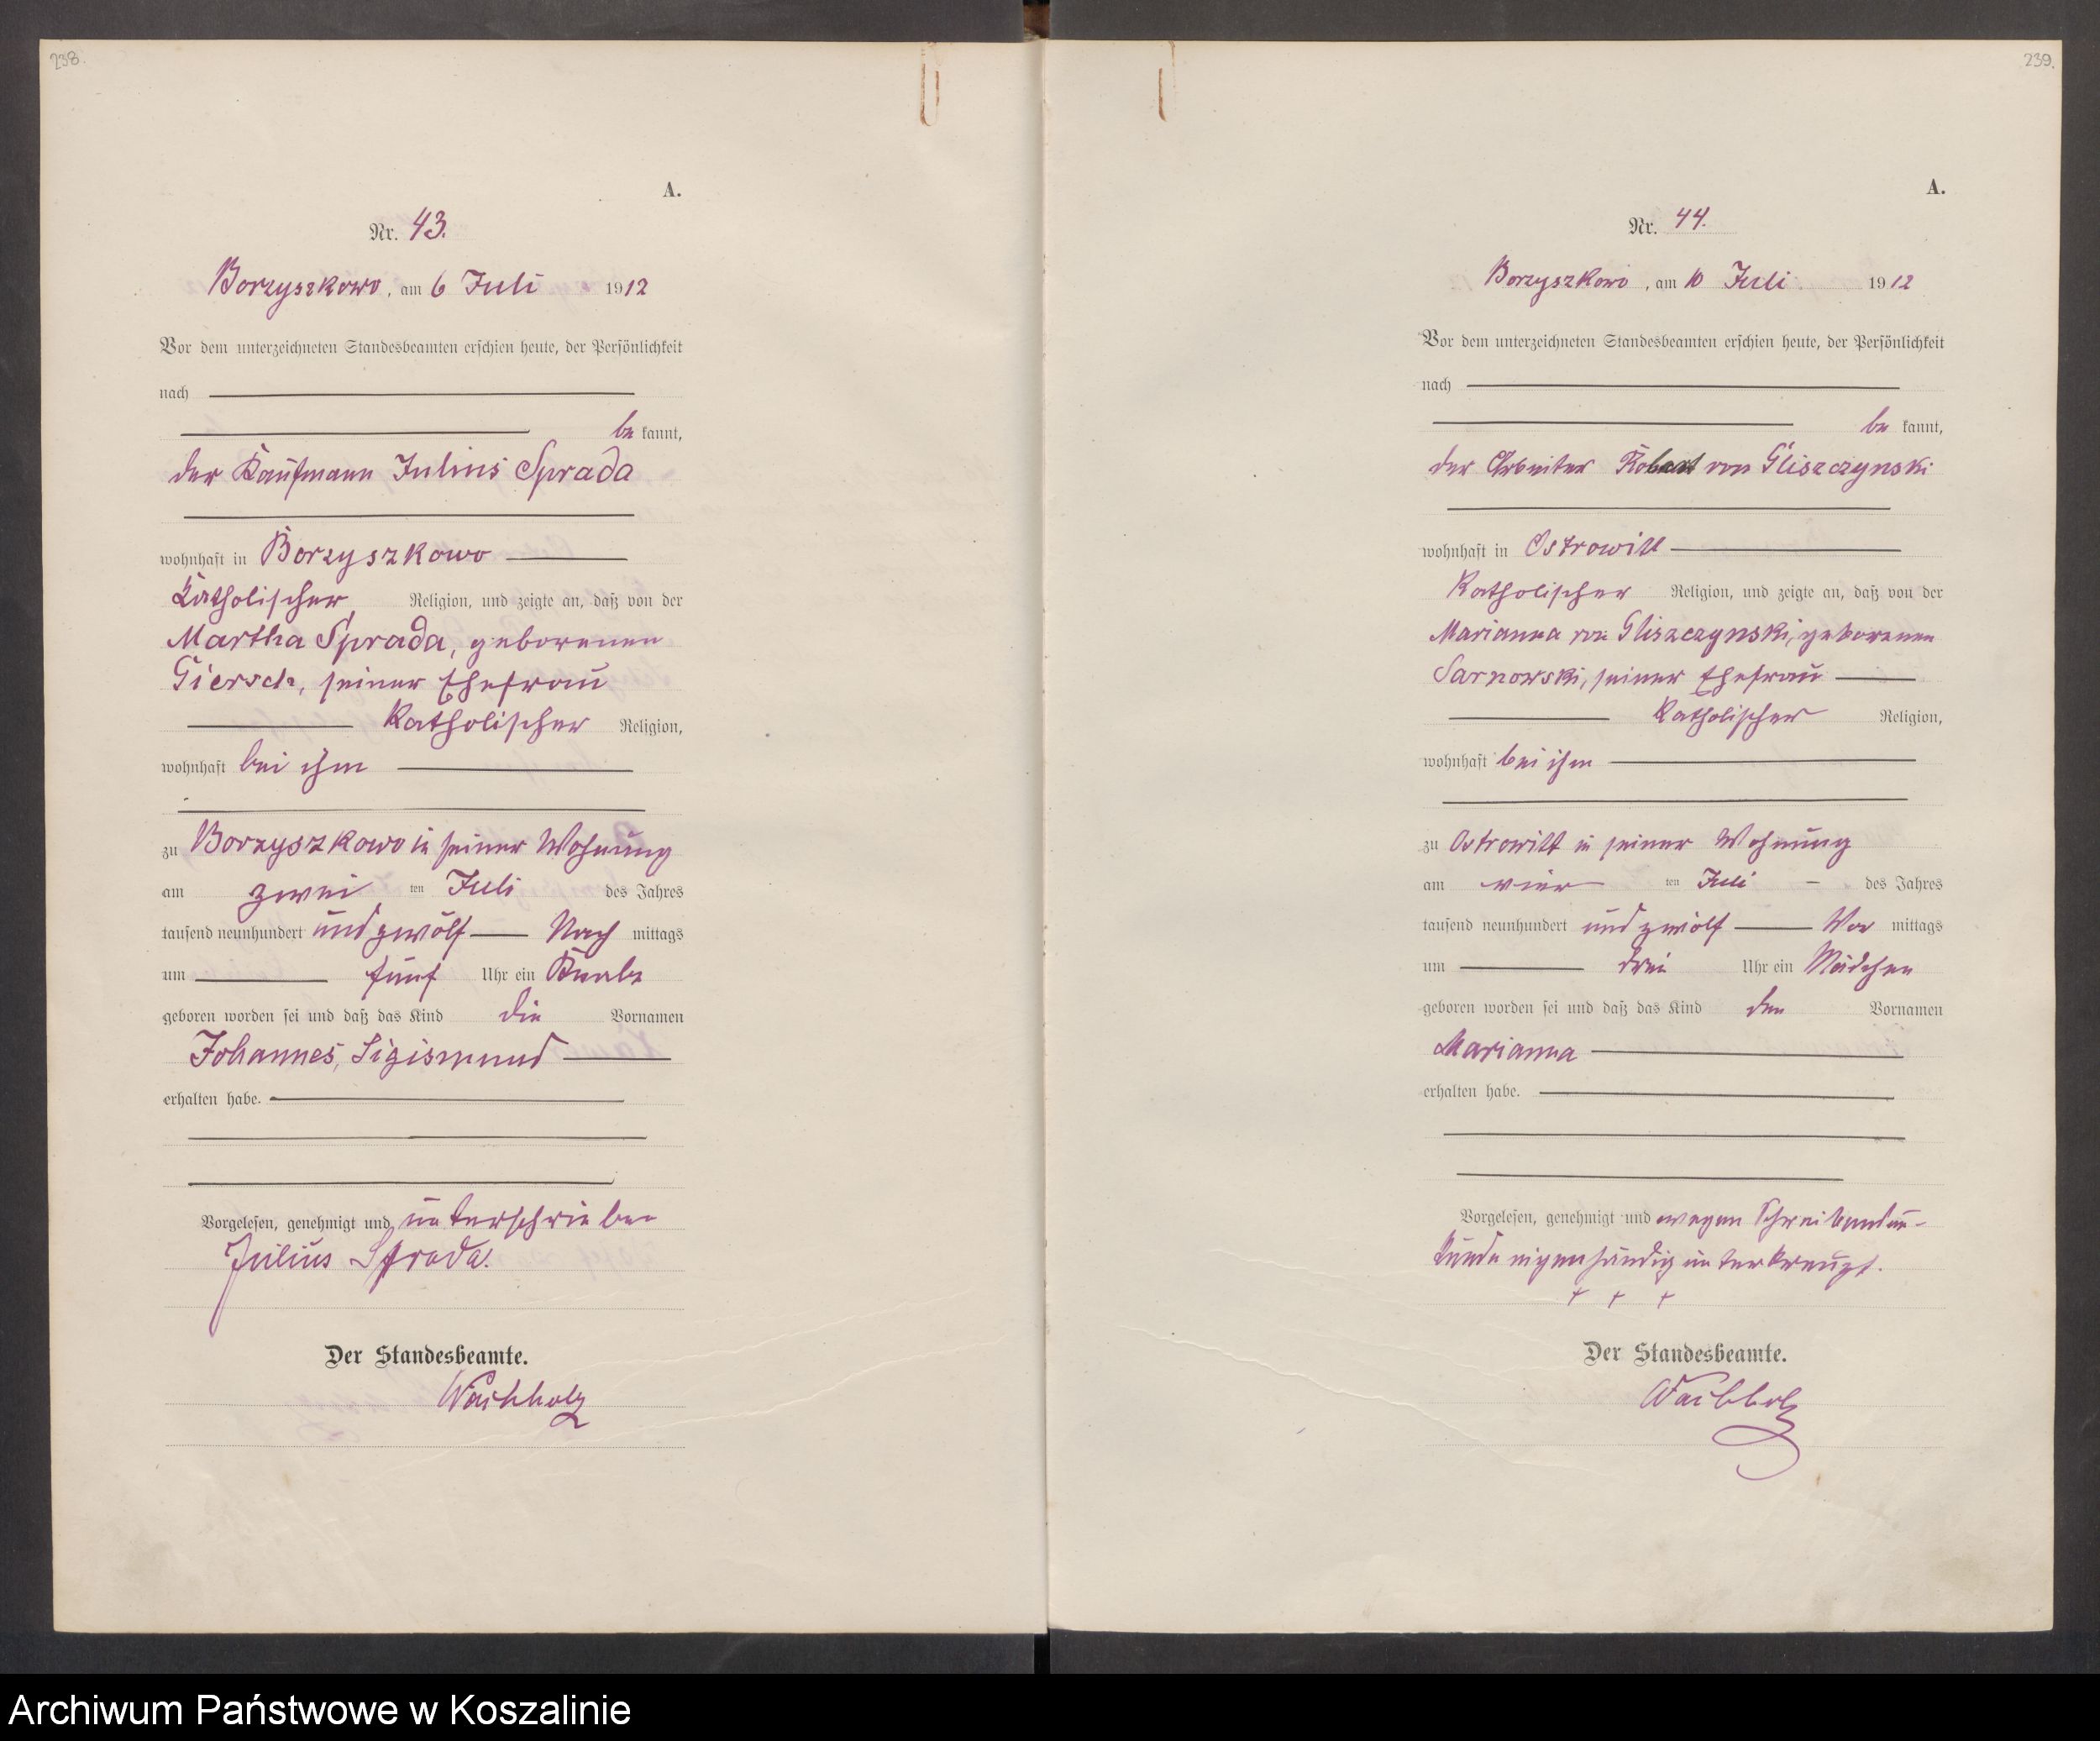 238.
A.
Nr. 43.
Borzyszkowo, am 6 Juli 1912
Vor dem unterzeichneten Standesbeamten erschien heute, der Persönlichkeit
nach
be kannt,
der Kaufmann Julius Sprada
wohnhaft in Borzyszkowo
Katholischer Religion, und zeigte an, daß von der
Martha Sprada, geborenen
Giersch, seiner Ehefrau
Katholischer Religion,
wohnhaft bei ihm
zu Borzyszkowo in seiner Wohnung
am zwei ten Juli des Jahres
tausend neunhundert und zwölf Nach mittags
um fünf Uhr ein Knabe
geboren worden sei und daß das Kind die Vornamen
Johannes, Sigismund
erhalten habe.
Vorgelesen, genehmigt und unterschrieben
Julius Sprada.
Der Standesbeamte.
Wachholz
239.
A.
Nr. 44.
Borzyszkowo, am 10 Juli 1912
Vor dem unterzeichneten Standesbeamten erschien heute, der Persönlichkeit
nach
be kannt,
der Arbeiter Robert von Gliszczynski
wohnhaft in Ostrowitt
Katholischer Religion, und zeigte an, daß von der
Marianna von Gliszczynski, geborenen
Sarnowski, seiner Ehefrau
Katholischer Religion,
wohnhaft bei ihm
zu Ostrowitt in seiner Wohnung
am vier ten Juli des Jahres
tausend neunhundert und zwölf Vor mittags
um drei Uhr ein Mädchen
geboren worden sei und daß das Kind den Vornamen
Marianna
erhalten habe.
Vorgelesen, genehmigt und wegen Schreibenun-
kunde eigenhändig unterkreuzt.
+ + +
Der Standesbeamte.
Wachholz
Archiwum Państwowe w Koszalinie